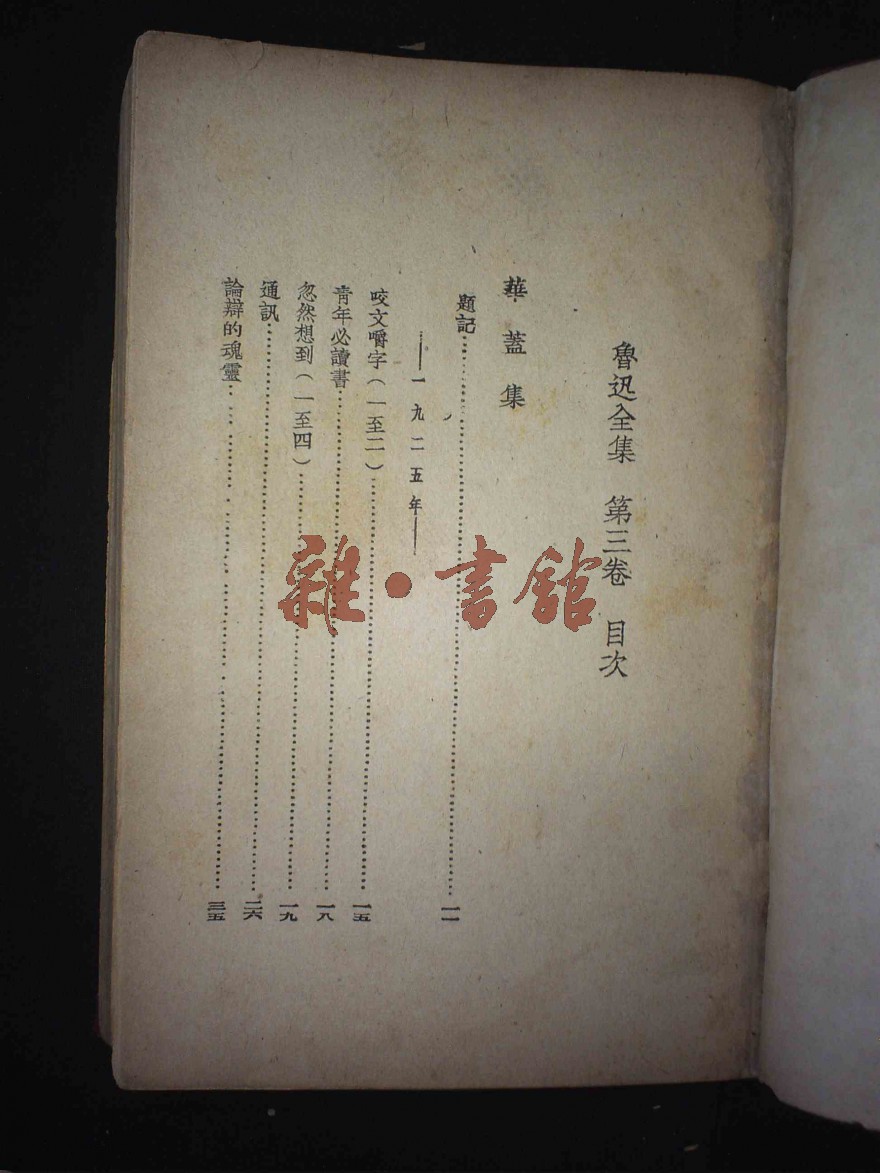 魯迅全集 第三卷 目次
華蓋集
題記……一一
——一九二五年——
咬文嚼字(一至二)……一五
青年必讀書……一八
忽然想到(一至四)……一九
通訊……二六
論辯的魂靈……三五
雜·書館